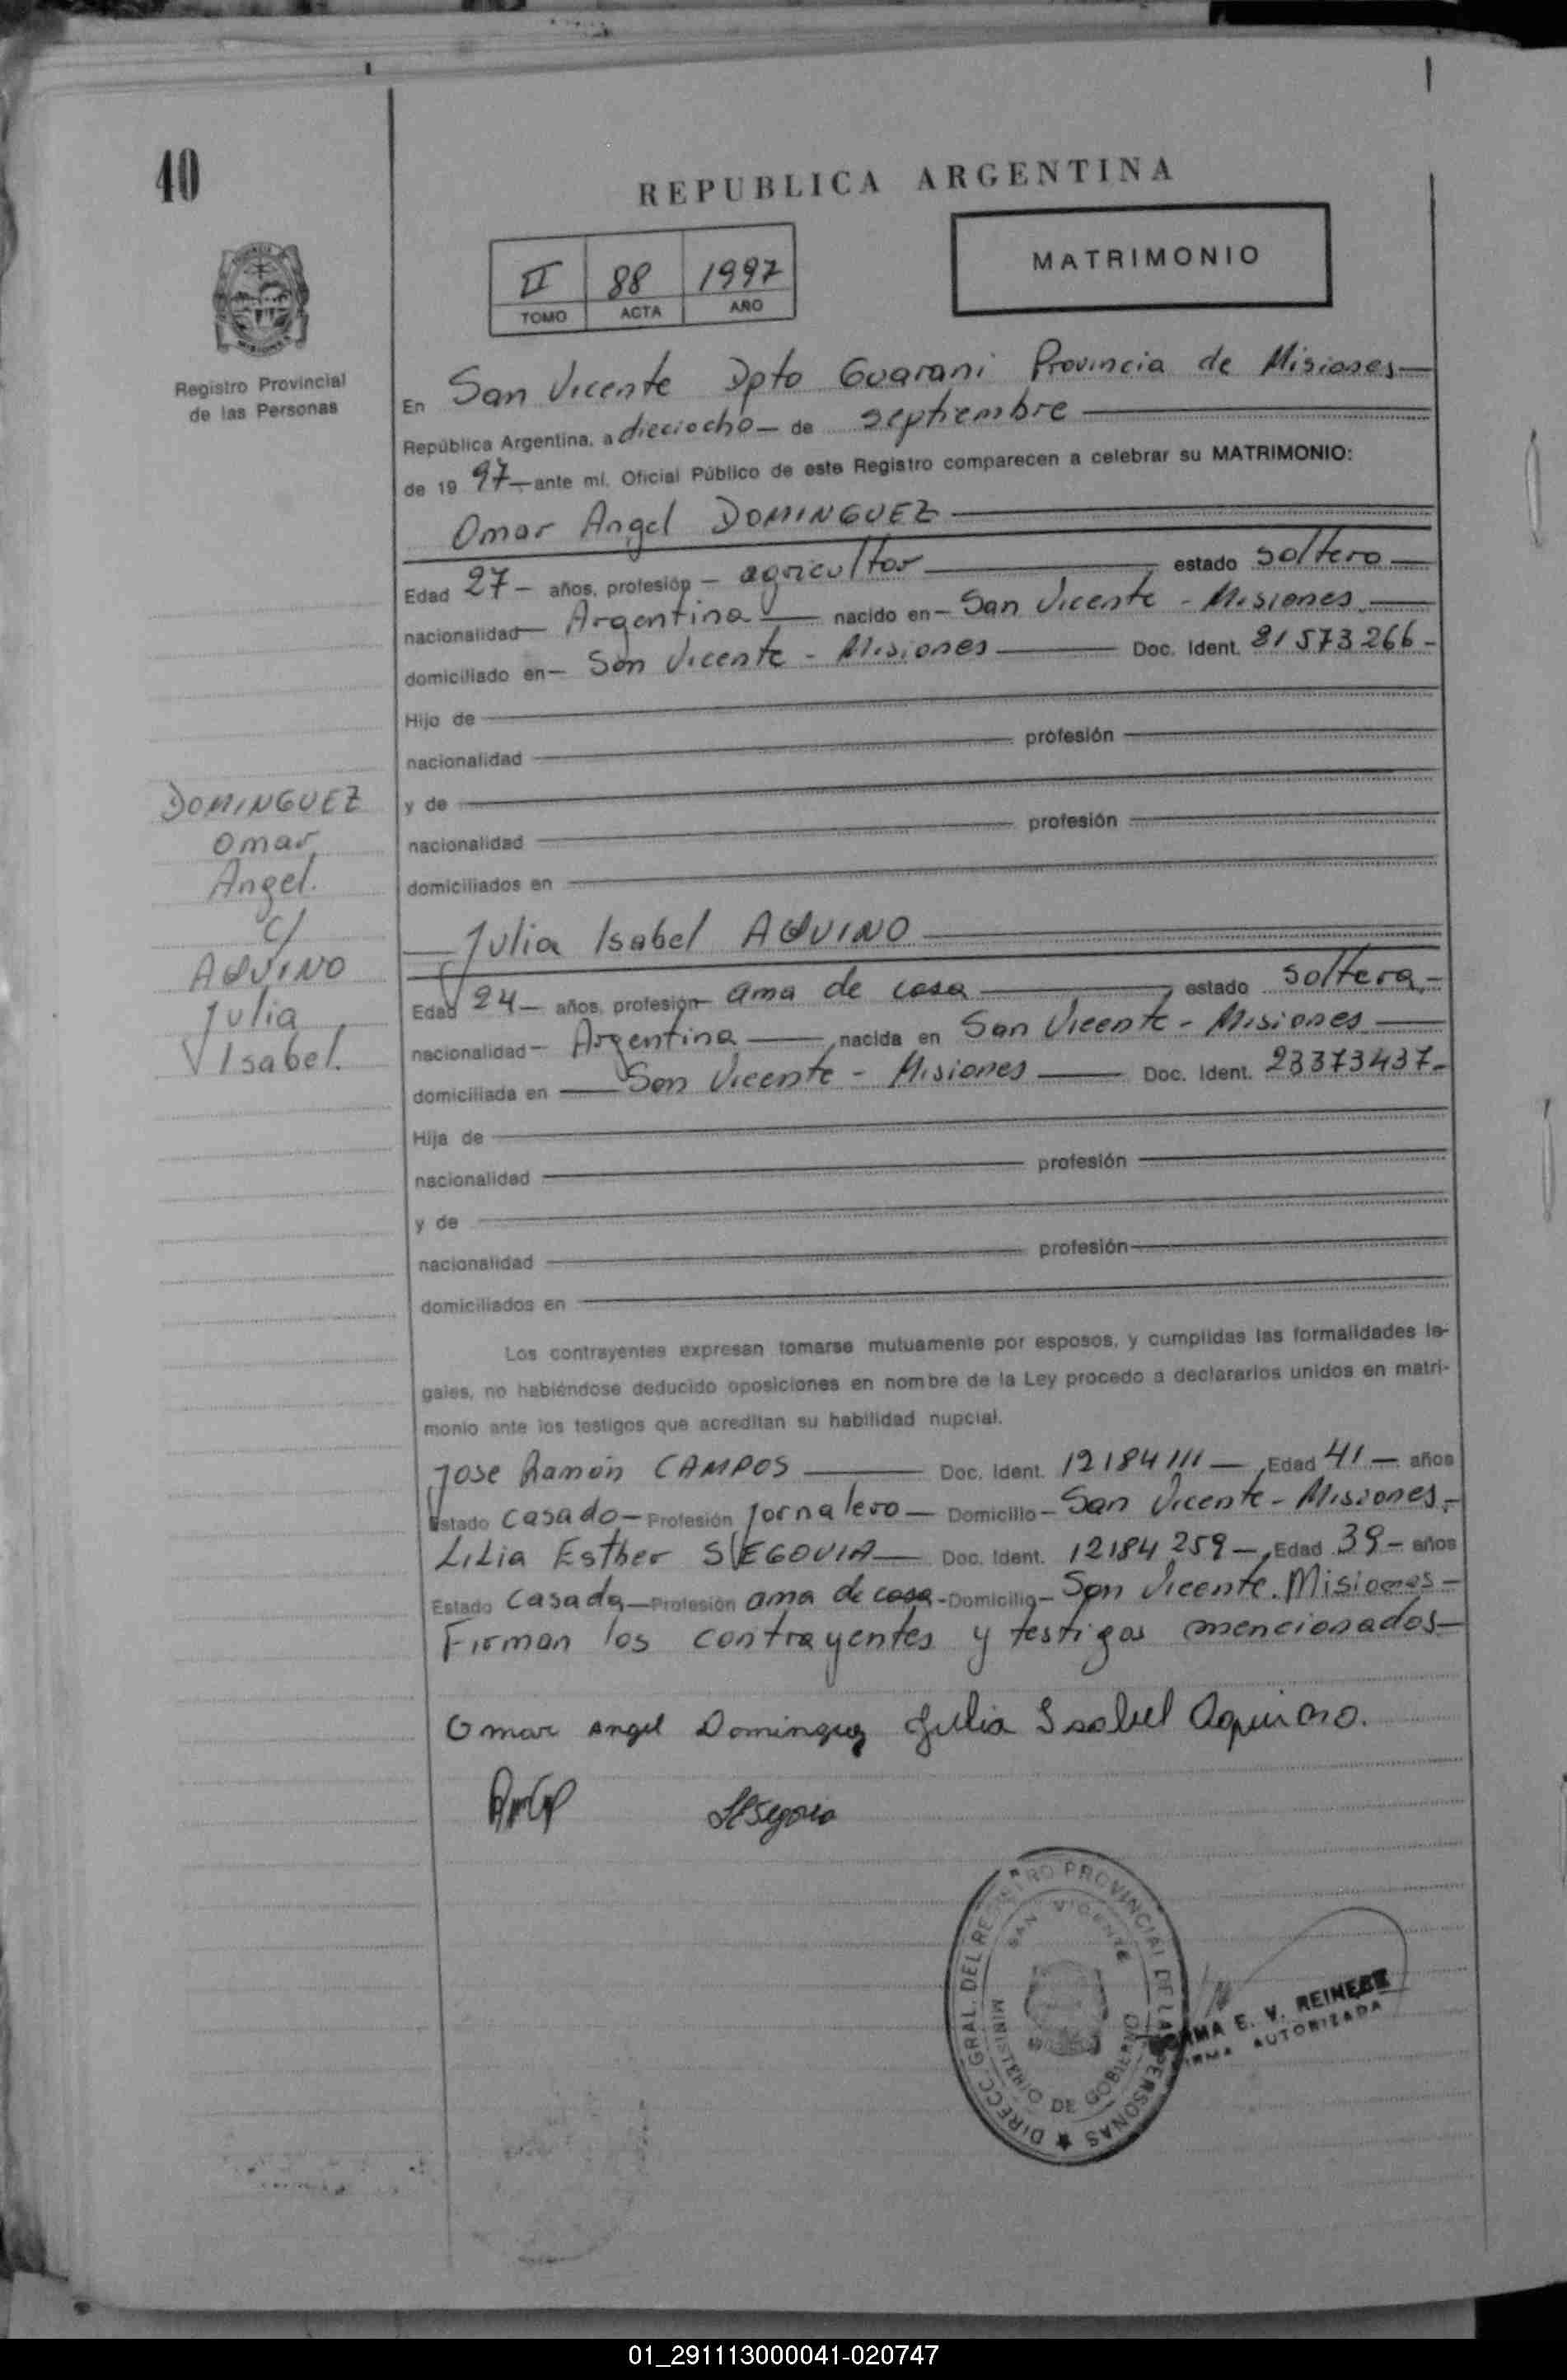 40
REPUBLICA ARGENTINA
II 88 1997
TOMO ACTA AÑO
MATRIMONIO
Registro Provincial
de las Personas
En San Vicente Dpto Guarani Provincia de Misiones
República Argentina, a dieciocho de septiembre
de 1997 ante mí, Oficial Público de este Registro comparecen a celebrar su MATRIMONIO:
Omar Angel DOMINGUEZ
Edad 27 años, profesión agricultor estado soltero
nacionalidad Argentina nacido en San Vicente - Misiones
domiciliado en San Vicente - Misiones Doc. Ident. 81573266
Hijo de
nacionalidad profesión
y de
nacionalidad profesión
domiciliados en
DOMINGUEZ
Omar
Angel.
c/
AQUINO
Julia
Isabel.
Julia Isabel AQUINO
Edad 24 años, profesión ama de casa estado soltera
nacionalidad Argentina nacida en San Vicente - Misiones
domiciliada en San Vicente - Misiones Doc. Ident. 23373437
Hija de
nacionalidad profesión
y de
nacionalidad profesión
domiciliados en
Los contrayentes expresan tomarse mutuamente por esposos, y cumplidas las formalidades le-
gales, no habiéndose deducido oposiciones en nombre de la Ley procedo a declararlos unidos en matri-
monio ante los testigos que acreditan su habilidad nupcial.
Jose Ramón CAMPOS Doc. Ident. 12184111 Edad 41 años
Estado casado Profesión jornalero Domicilio San Vicente - Misiones
Lilia Esther SEGOVIA Doc. Ident. 12184259 Edad 39 años
Estado Casada Profesión ama de casa Domicilio San Vicente. Misiones
Firman los contrayentes y testigos mencionados
Omar Angel Dominguez Julia Isabel Aquino.
DIRECC. GRAL. DEL REGISTRO PROVINCIAL DE LAS PERSONAS
SAN VICENTE
MINISTERIO DE GOBIERNO
E. V.
FIRMA AUTORIZADA
01_291113000041-020747